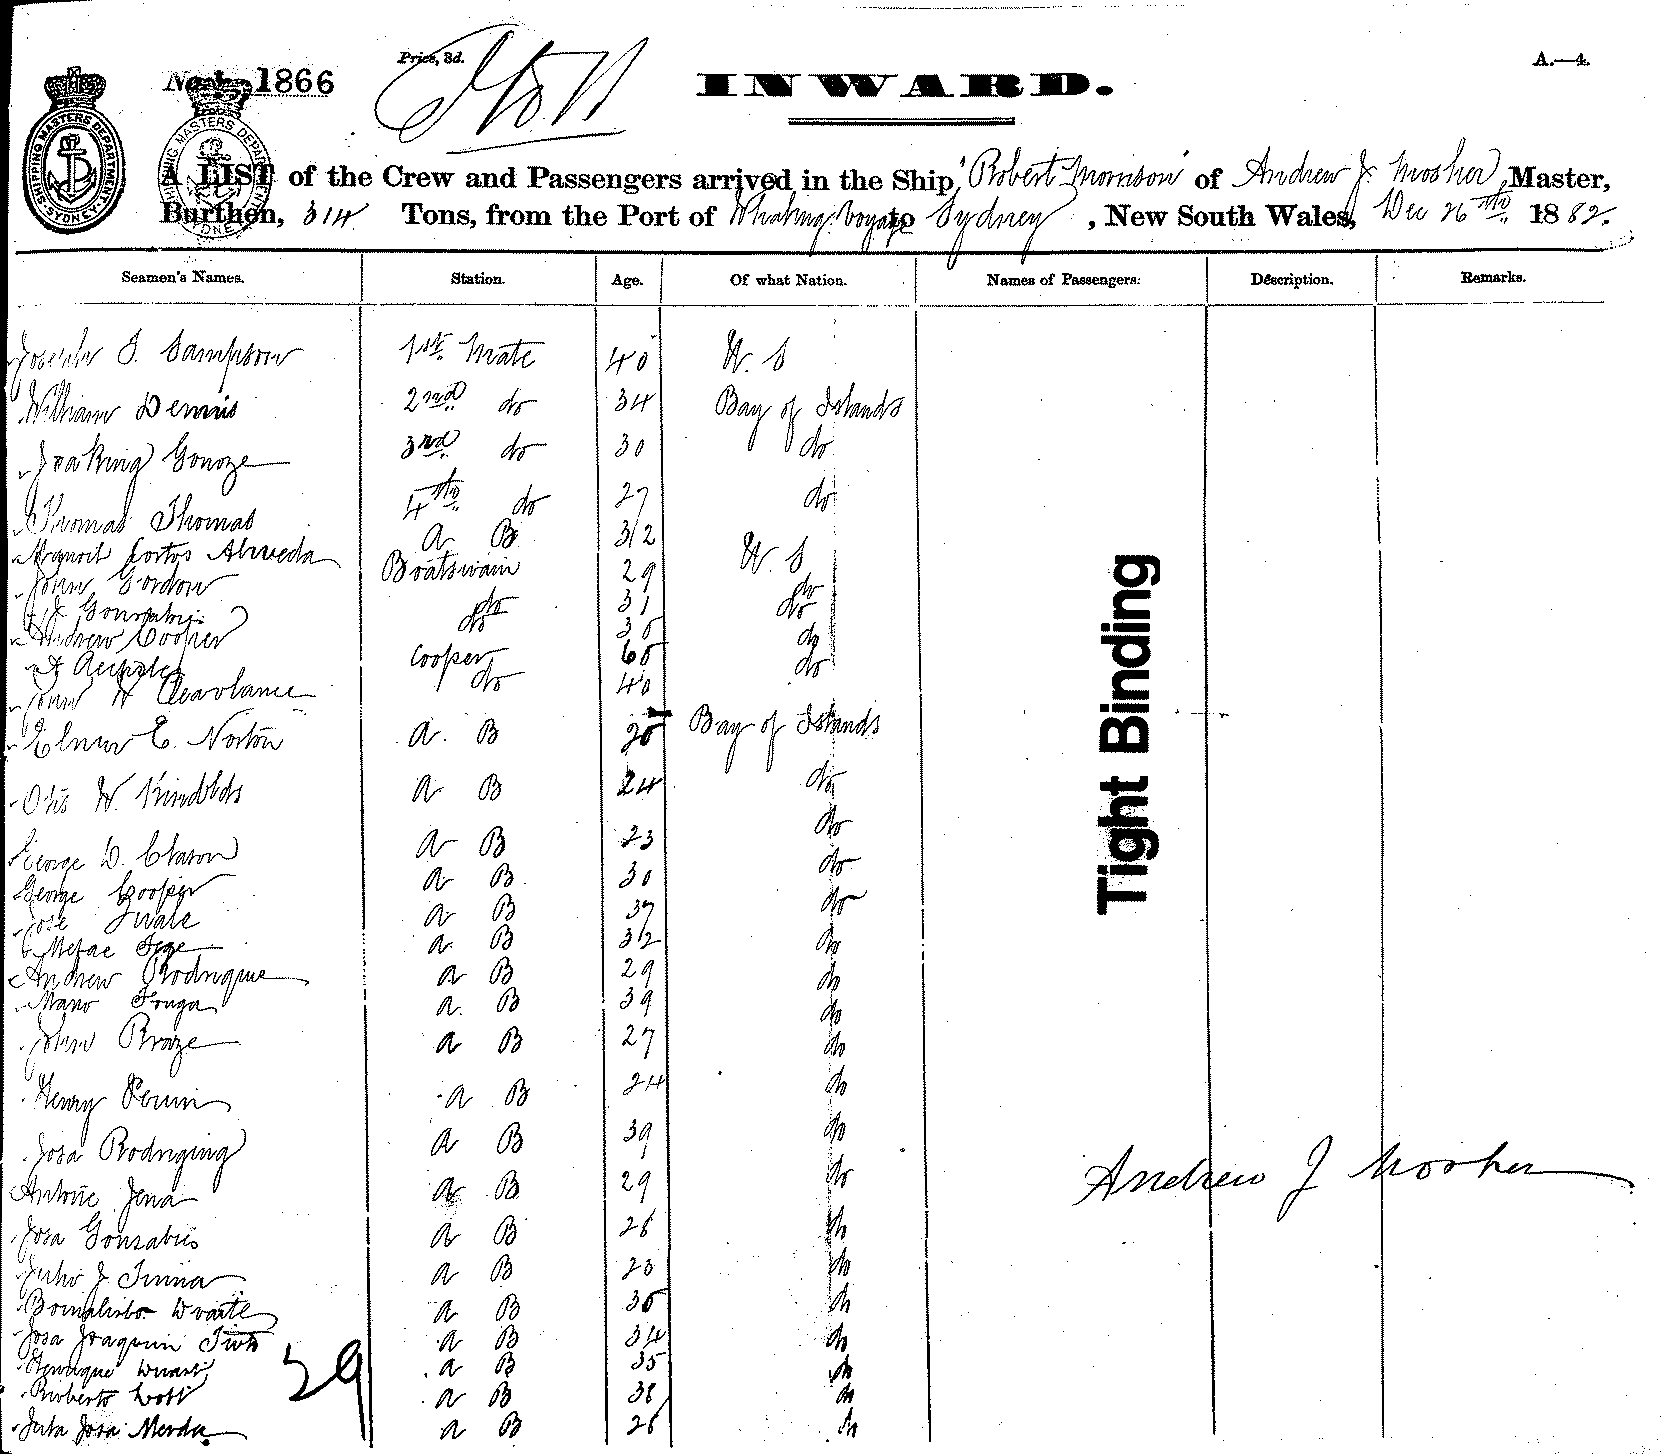 Price, 3d.
A.—4.
1866
INWARD.
SHIPPING MASTERS DEPARTMENT SYDNEY
SHIPPING MASTERS DEPARTMENT SYDNEY
A LIST of the Crew and Passengers arrived in the Ship "Robert Morrison" of Andrew J. Mosher, Master,
Burthen, 314 Tons, from the Port of Whaling Voyage to Sydney, New South Wales, Dec 26th 1882.
Seamen's Names. Station. Age. Of what Nation. Names of Passengers. Description. Remarks.
Joseph S. Sampson 1st Mate 40 U. S
William Dennis 2nd do 34 Bay of Islands
Joaking Gonoze 3rd do 30 do
Thomas Thomas 4th do 27 do
Almeda a B 32 U. S
John Gordon Boatswain 29 do
J. do 31 do
Andrew Cooper do do
A Cooper 60 do
John H Cleavlance do 40
Elmer E. Norton a. B 20 Bay of Islands
Otis W. a B 24 do
George D. Clason a B 23 do
George Cooper a B 30 do
Jose a B 37 do
a B 32 do
Andrew Rodrigue a B 29 do
Mano a. B 39 do
John Braze a B 27 do
Henry a B 24 do
Josa Rodriging a B 39 do
Antone Jena a B 29 do
Josa Gonsabies a B 26 do
Julio J. a B 23 do
a B 36 do
Josa Joaquin a B 34 do
a B 35 do
Roberto a B 38 do
Josa a B 26 do
29
Andrew J Mosher
Tight Binding